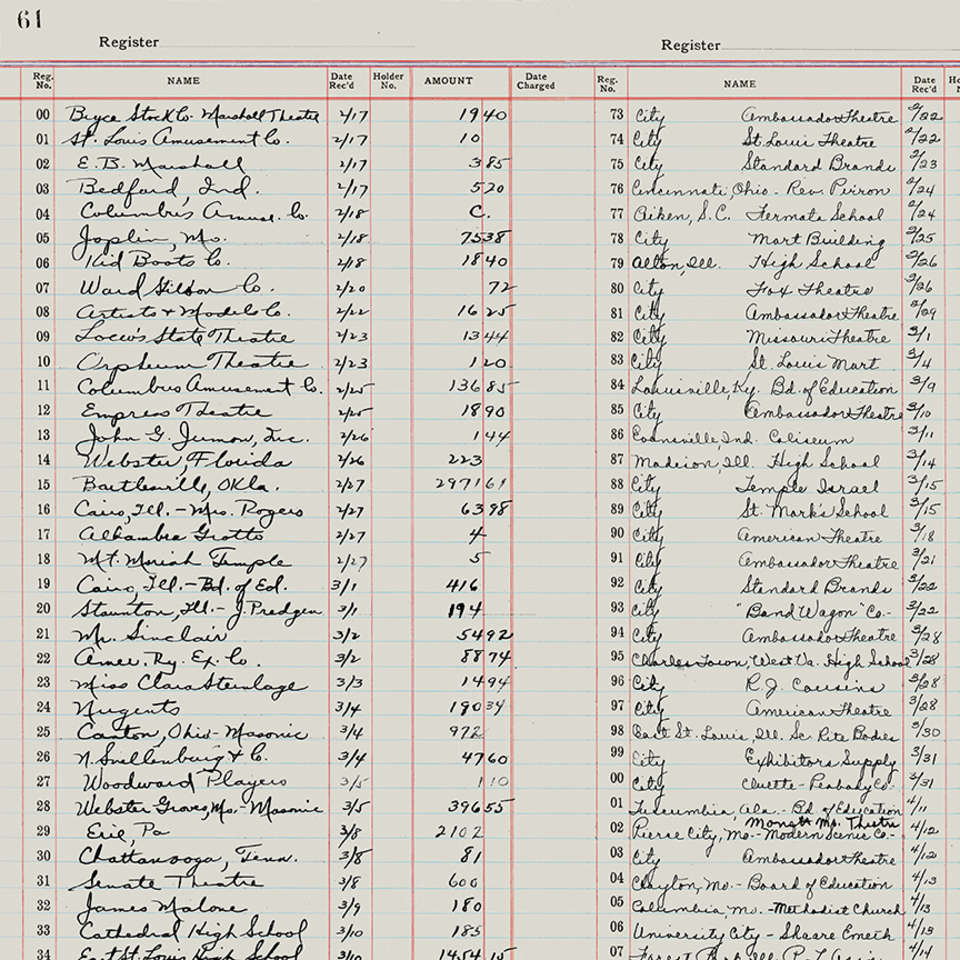 61
Register
Reg. No. NAME Date Rec'd Holder No. AMOUNT Date Charged
00 Bryce Stock Co. Marshall Theatre 2/17 19 40
01 St. Louis Amusement Co. 2/17 10
02 E.B. Marshall 2/17 3 85
03 Bedford, Ind. 2/17 520
04 Columbus Amuse. Co. 2/18 C.
05 Joplin, Mo. 2/18 75 38
06 Kid Boots Co. 2/18 18 40
07 Ward Gibson Co. 2/20 72
08 Artists & Models Co. 2/22 16 25
09 Loew's State Theatre 2/23 13 44
10 Orpheum Theatre 2/23 1 20
11 Columbus Amusement Co. 2/25 136 85
12 Empress Theatre 2/25 18 90
13 John G. 2/26 1 44
14 Webster, Florida 2/26 223
15 Bartlesville, Okla. 2/27 2971 61
16 Cairo, Ill. - Mrs. Rogers 2/27 63 98
17 Alhambra Grotto 2/27 4
18 Mt. Moriah Temple 2/27 5
19 Cairo, Ill. - Bd. of Ed. 3/1 416
20 Staunton, Ill. - J. Predgen 3/1 194
21 Mr. Sinclair 3/2 54 92
22 Amer. Ry. Ex. Co. 3/2 88 74
23 Miss Clara Steinlage 3/3 14 94
24 Nugents 3/4 190 34
25 Canton, Ohio - Masonic 3/4 972
26 N. Snellenburg & Co. 3/4 47 60
27 Woodward Players 3/5 1 10
28 Webster Groves, Mo. - Masonic 3/5 396 55
29 Erie, Pa 3/8 2102
30 Chattanooga, Tenn. 3/8 81
31 Senate Theatre 3/8 600
32 James Malone 3/9 180
33 Cathedral High School 3/10 185
34 East St. Louis High School 3/10 1454 15
Register
Reg. No. NAME Date Rec'd
73 City Ambassador Theatre 2/22
74 City St. Louis Theatre 2/22
75 City Standard Brands 2/23
76 Cincinnati, Ohio - Rev. Peiron 2/24
77 Aiken, S.C. Fermata School 2/24
78 City Mart Building 2/25
79 Alton, Ill. High School 2/26
80 City Fox Theatre 2/26
81 City Ambassador Theatre 2/29
82 City Missouri Theatre 3/1
83 City St. Louis Mart 3/4
84 Louisville, Ky. Bd. of Education 3/9
85 City Ambassador Theatre 3/10
86 Evansville, Ind. Coliseum 3/11
87 Madison, Ill. High School 3/14
88 City Temple Israel 3/15
89 City St. Mark's School 3/15
90 City American Theatre 3/18
91 City Ambassador Theatre 3/21
92 City Standard Brands 3/22
93 City "Band Wagon" Co. - 3/22
94 City Ambassador Theatre 3/28
95 Charles Town, West Va. High School 3/28
96 City R.J. Cousins 3/28
97 City American Theatre 3/28
98 East St. Louis, Ill. Sc. Rite Bodies 3/30
99 City Exhibitors Supply 3/31
00 City Cluett-Peabody Co. 3/31
01 Tuscumbia, Ala. - Bd. of Education 4/11
Mo. Theatre
02 Pierce City, Mo. - Modern Scenic Co. - 4/12
03 City Ambassador Theatre 4/12
04 Clayton, Mo. - Board of Education 4/13
05 Columbia, Mo. - Methodist Church 4/13
06 University City - Shaare Emeth 4/13
07 Forest Park Ill. 4/14